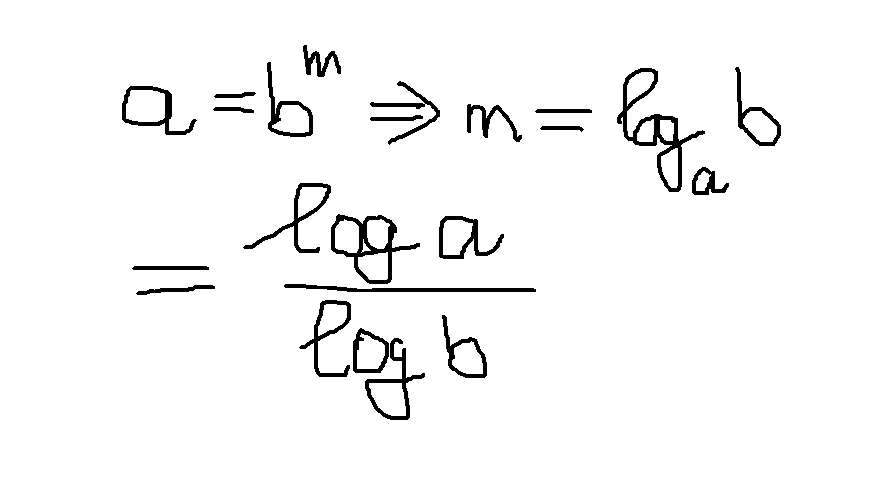 a = b^m ⇒ m = log_a b
= \frac{log a}{log b}